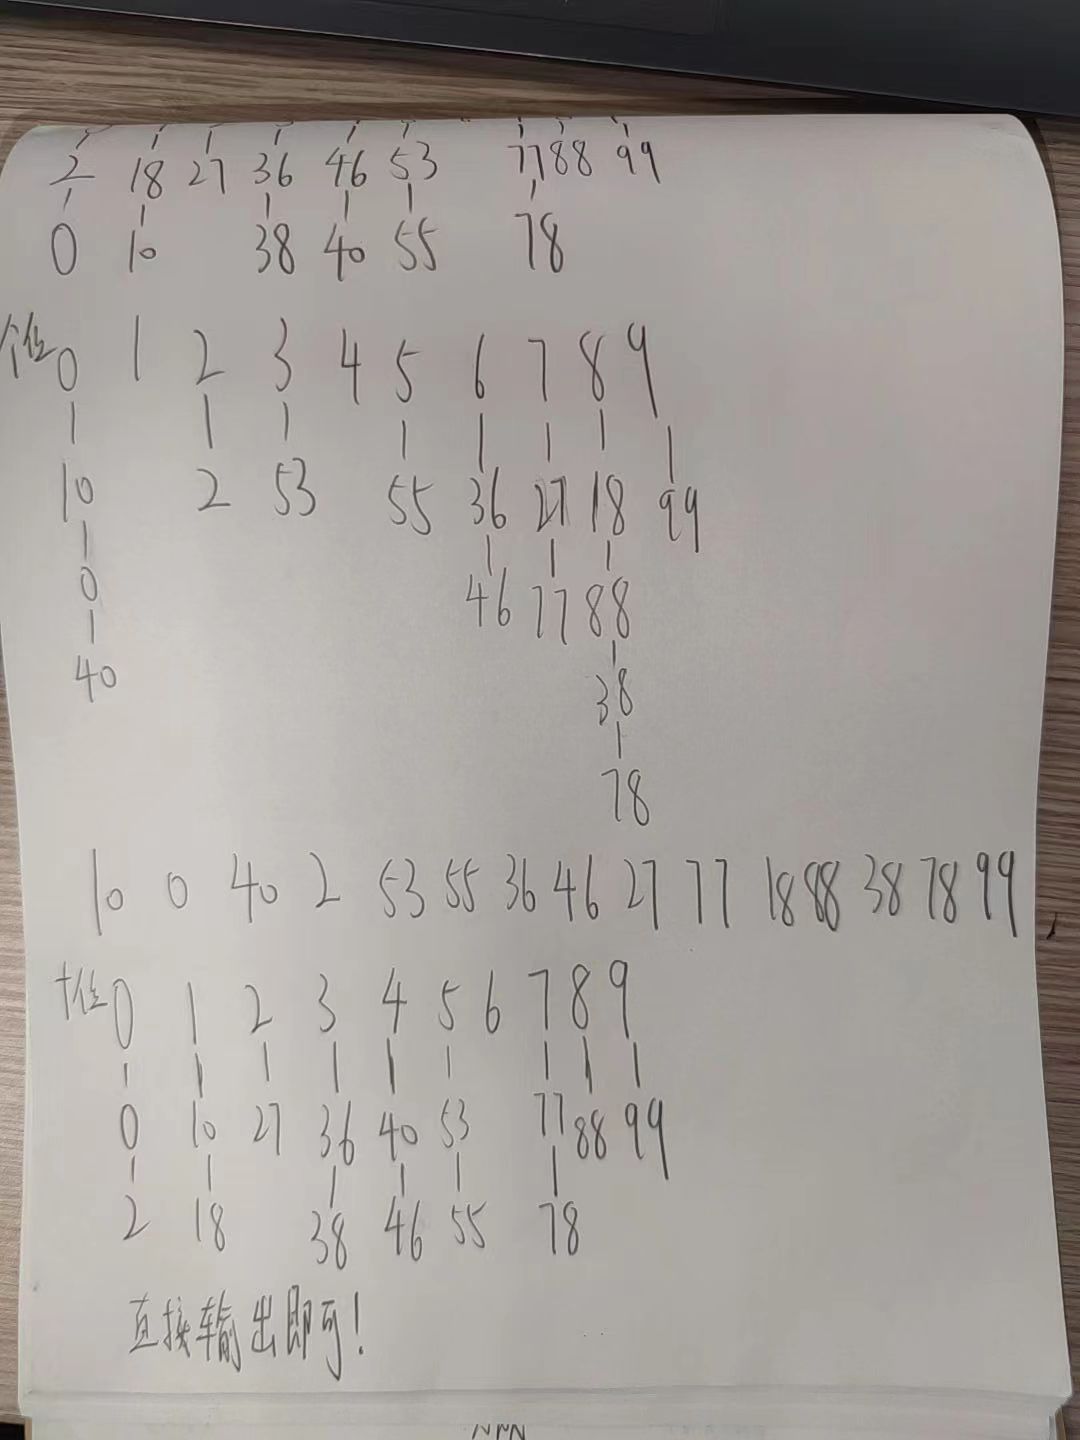 2 18 27 36 46 53 77 88 99
0 10 38 40 55 78
个位 0 1 2 3 4 5 6 7 8 9
10 2 53 55 36 27 18 99
0 46 77 88
40 38
78
10 0 40 2 53 55 36 46 27 77 18 88 38 78 99
十位 0 1 2 3 4 5 6 7 8 9
0 10 27 36 40 53 77 88 99
2 18 38 46 55 78
直接输出即可!